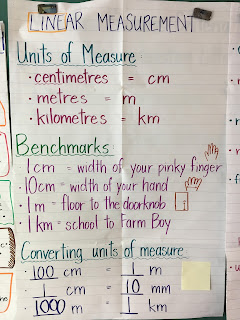 LINEAR MEASUREMENT
Units of Measure:
• centimetres = cm
• metres = m
• kilometres = km
Benchmarks:
1cm = width of your pinky finger
• 10cm = width of your hand
• 1m = floor to the doorknob
• 1km = school to Farm Boy
Converting units of measure
• 100 cm = 1 m
• 1 cm = 10 mm
• 1000 m = 1 km